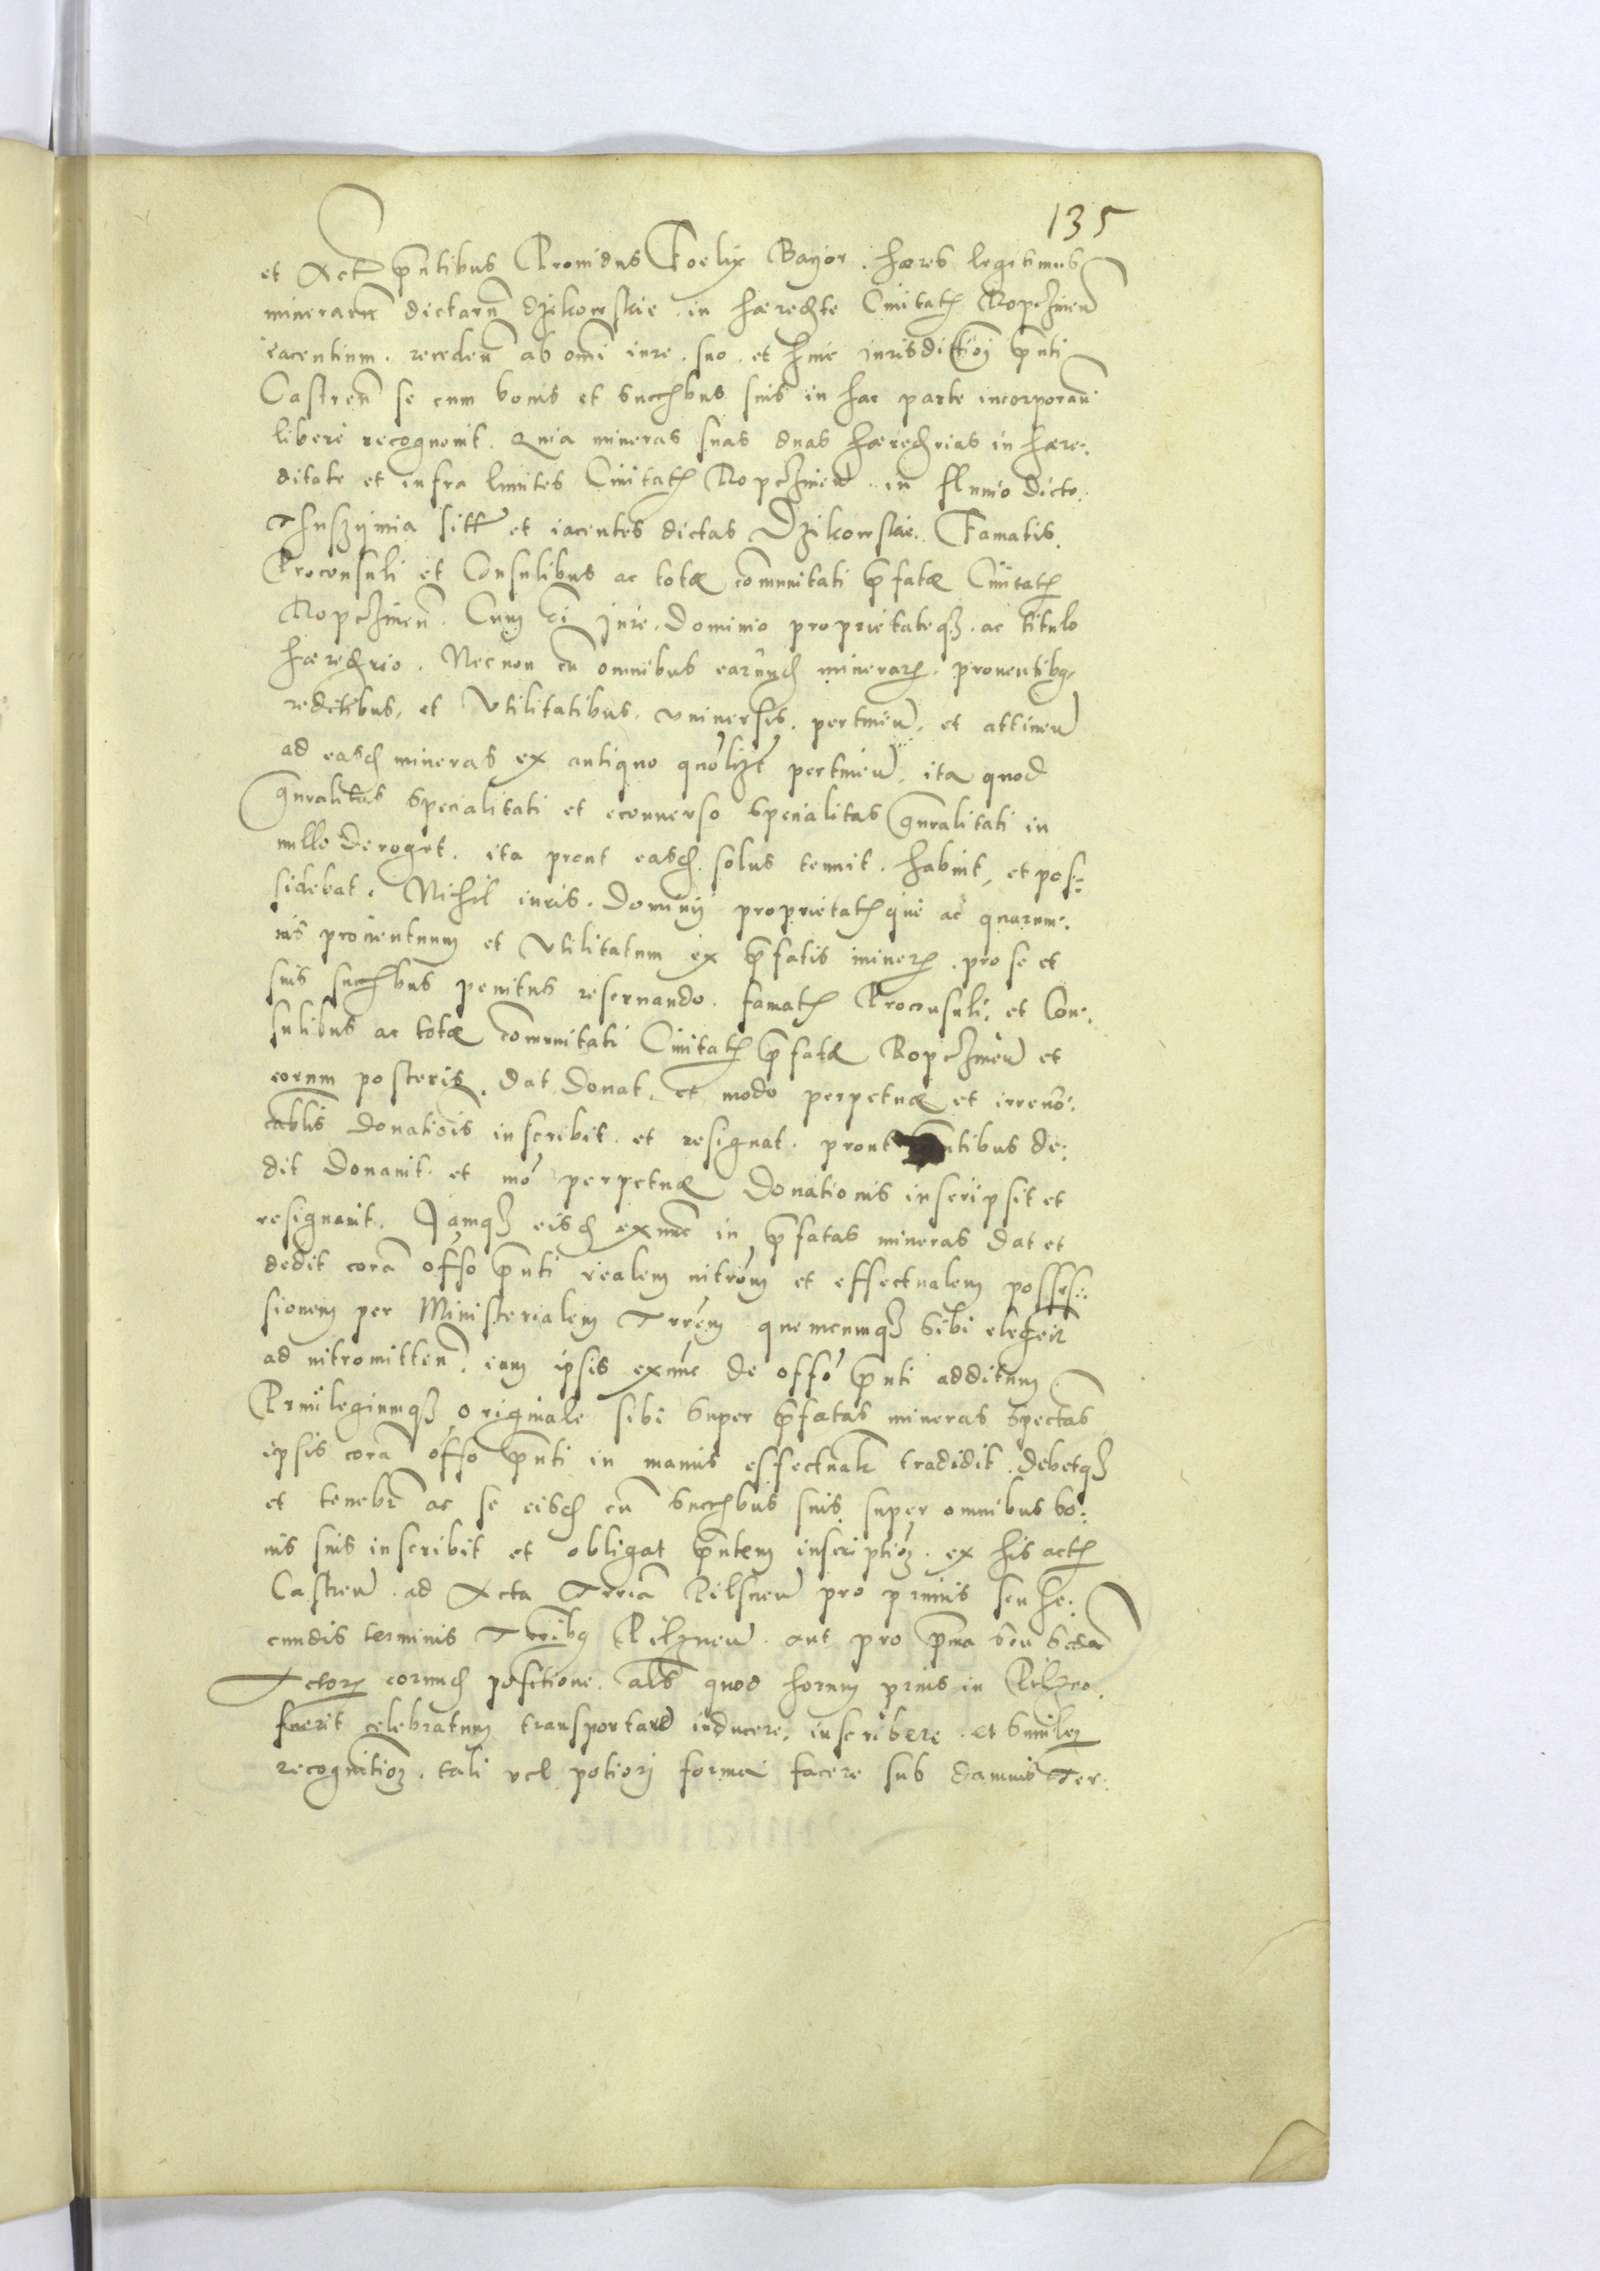 135
et Act pñtibus Prouidus Foelix Bayor. hæres legitimus
minerarũ dictarũ Dzikowskie in hæredte Ciuitatis Ropczicen̄
iacentium. receden̄ ab om̄i iure. suo. et huic iurisdictioi pñti
Castren̄ se cum bonis et succ̄ibus suis in hac parte incorporan̄
liberè recognouit. Quia mineras suas duas hæred̄rias in hære:
ditate et infra limites Ciuitatis Ropczicen̄ in fluuio dicto.
sitt̄ et iacentes dictas Dzikowskie. Famatis.
Proconsuli et Consulibus ac totæ com̄unitati p̄fatæ Ciuitatis
Ropczicen̄. Cum oi Jure. Dominio proprietateq3. ac titulo
hæred̄rio. Necnon cũ omnibus earund̄ minerar. prouentibg
reditibus, et Vtilitatibus. vniuersis. pertinen̄. et attinen̄
ad easd̄ mineras ex antiquo quolizt pertinen̄. ita quod
gñralitas specialitati et econuerso specialitas gñralitati in
nullo deroget. ita prout easd̄ solus tenuit. habuit, et pos:
sidebat. Nihil iuris. Dominij proprietatisque ac quarum:
uis prouentuum et Vtilitatum ex p̄fatis miner. pro se et
suis succ̄ibus penitus reseruando. famatis Proconsuli: et Con:
sulibus ac totæ com̄unitati Ciuitatis p̄fatæ Ropczicen̄ et
eorum posteris. dat donat. et modo perpetuæ et irreuo:
cablis donatiois inscribit. et resignat. prout p̄ntibus de:
dit donauit. et mo perpetuæ Donationis inscripsit et
resignauit. Jamq3 eisd̄ exnunc in p̄fatas mineras dat et
dedit corã offo p̄nti realem intrõm et effectualem posses:
sionem per Ministerialem Trrẽm quemcumq3 sibi elegerit
ad intromitten̄. eum ipsis exnunc de offo p̄nti additum
Priuilegiumq3 originale sibi super p̄fatas mineras spectas
ipsis corã offo p̄nti in manus effectualr tradidit. debetq3
et tenebr̄ ac se eisd̄ cũ succ̄ibus suis super omnibus bo:
nis suis inscribit et obligat p̄ntem inscription. ex his actis
Castren̄. ad Acta Trria Pilsnen̄ pro primis seu se:
cundis terminis Trribg Pilznen̄. aut pro p̄ma seu scda
Actor. eorund̄ positione. als quod horum prius in Pilzno.
fuerit celebratum transportare inducere, inscribere. et similem
recognition. tali vel potiori forma facere sub damnis Ter: